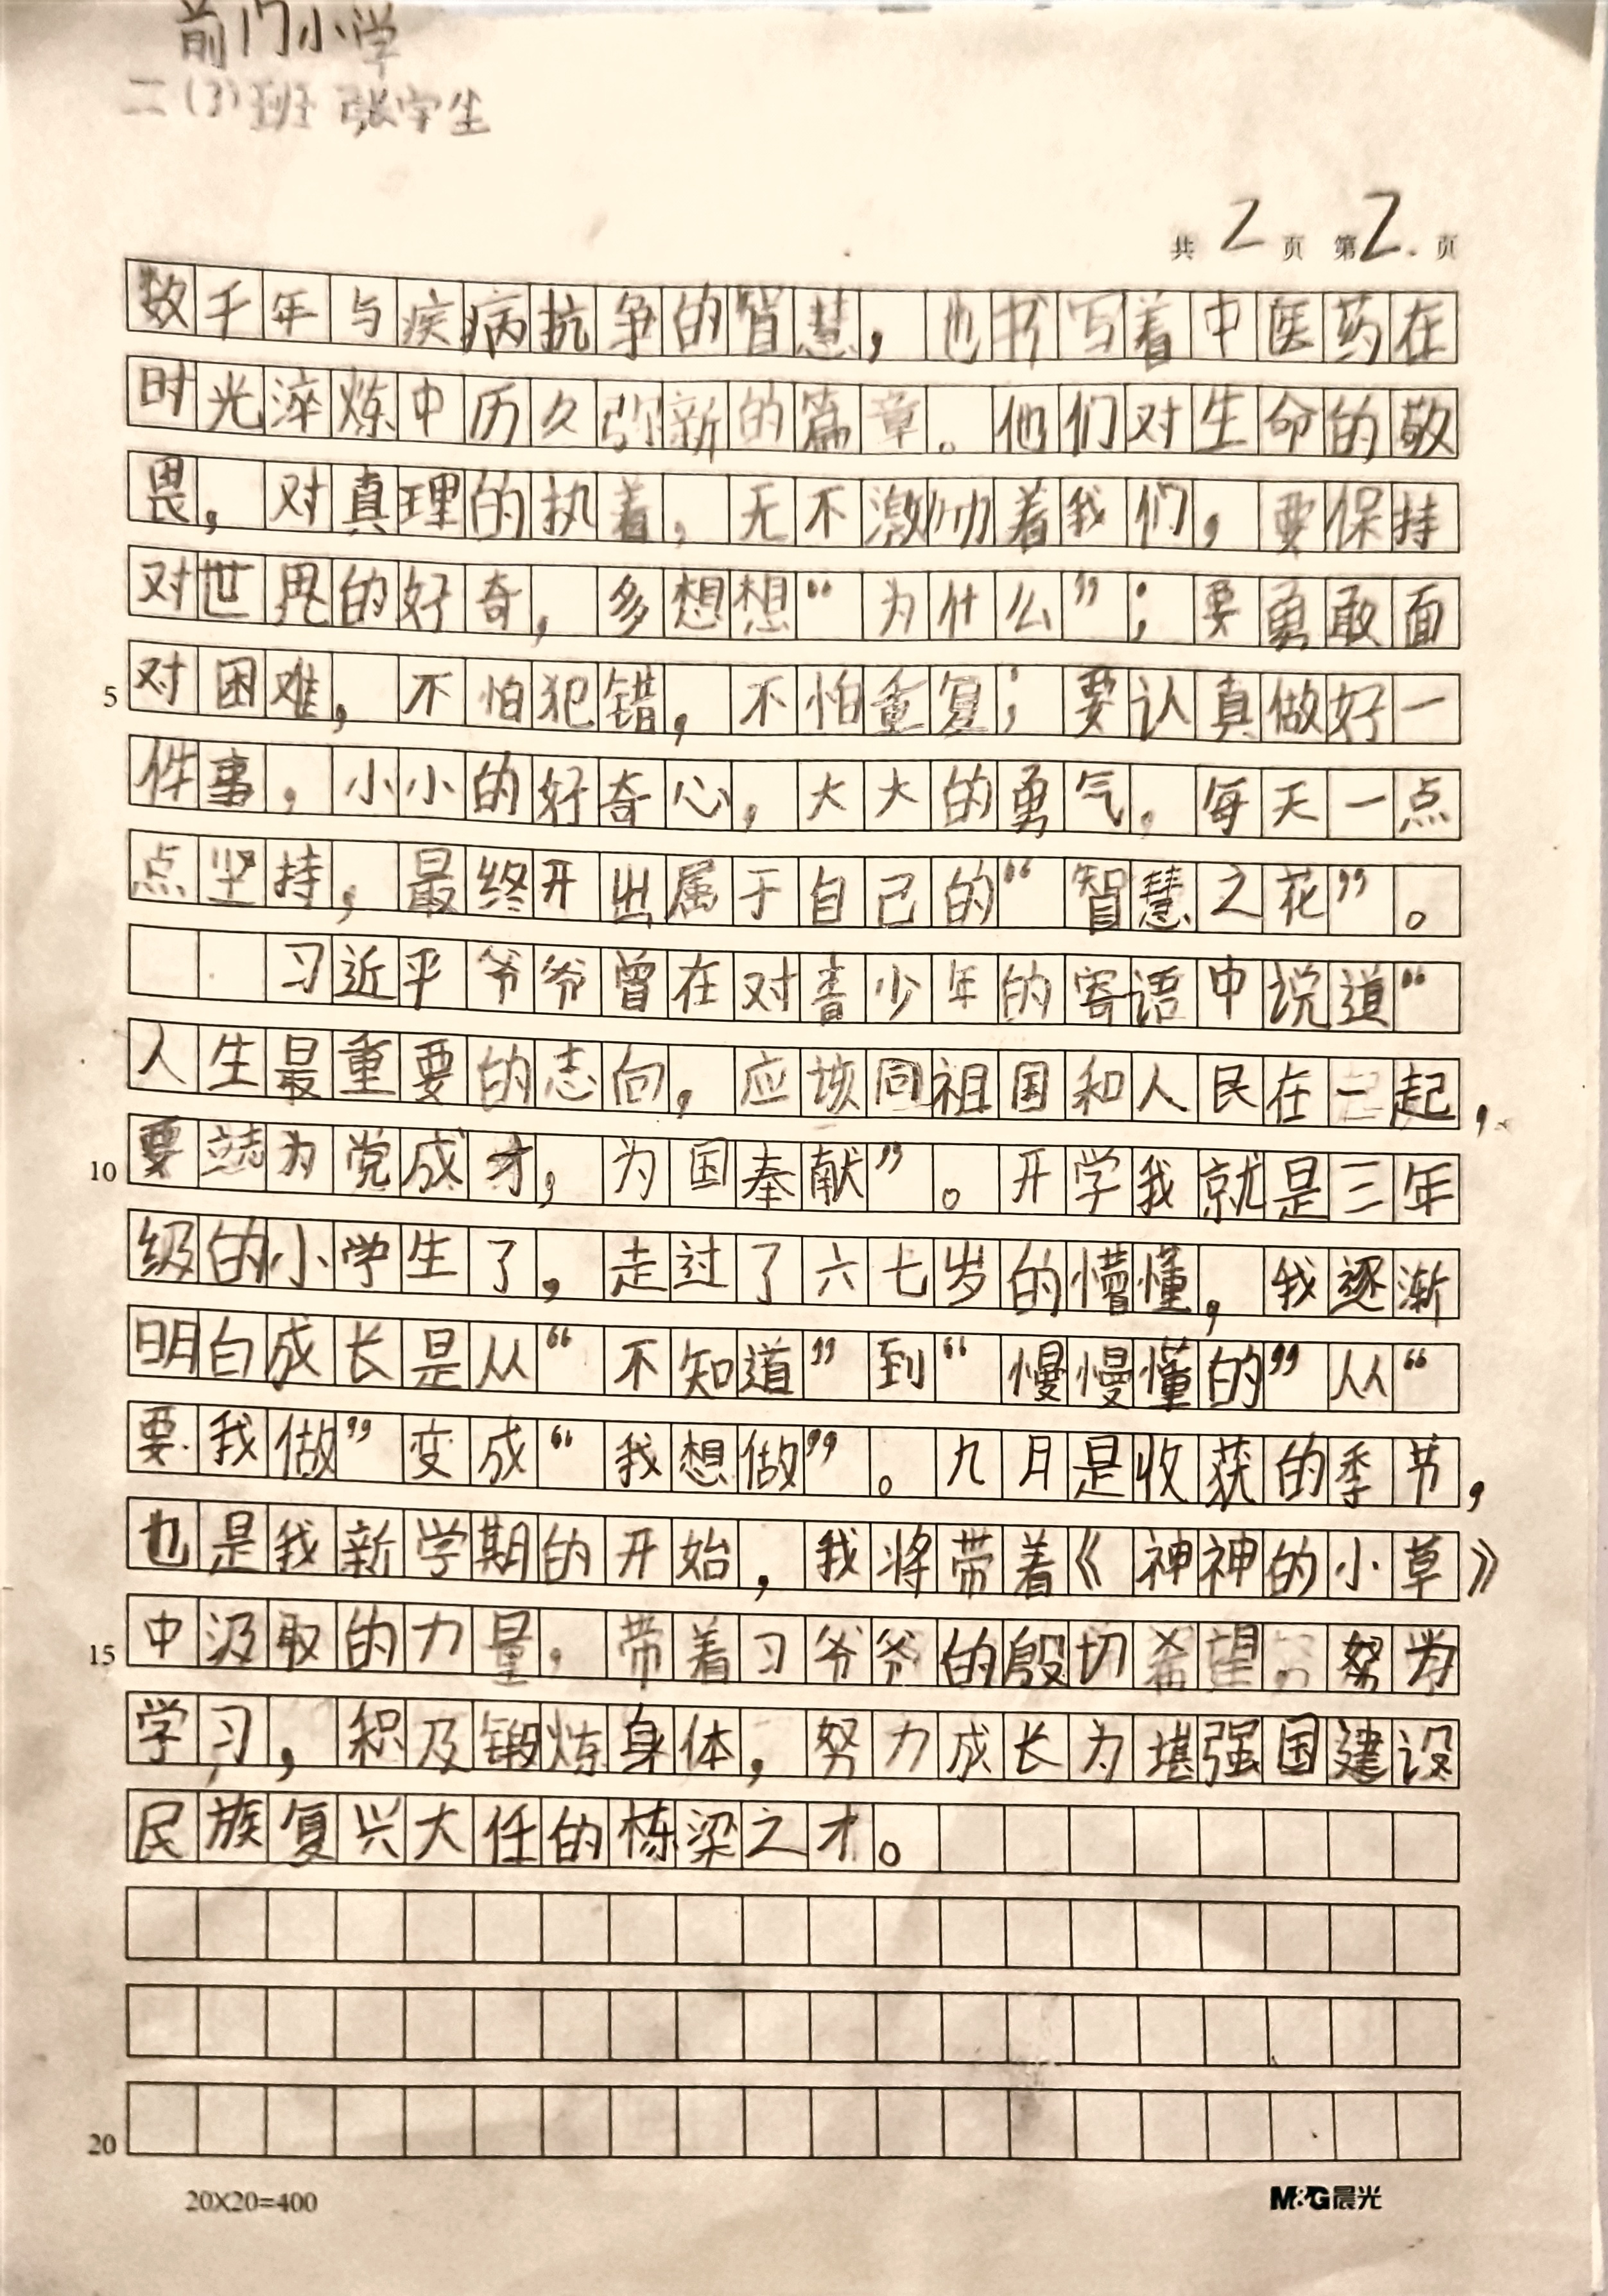 前门小学
二(3)班 张宇生
共2页 第2页
数千年与疾病抗争的智慧，也书写着中医药在
时光淬炼中历久弥新的篇章。他们对生命的敬
畏，对真理的执着，无不激励着我们，要保持
对世界的好奇，多想想“为什么”；要勇敢面
5 对困难，不怕犯错，不怕重复；要认真做好一
件事，小小的好奇心，大大的勇气，每天一点
点坚持，最终开出属于自己的“智慧之花”。
习近平爷爷曾在对青少年的寄语中说道“
人生最重要的志向，应该同祖国和人民在一起，
10 要志为党成才，为国奉献”。开学我就是三年
级的小学生了，走过了六七岁的懵懂，我逐渐
明白成长是从“不知道”到“慢慢懂的”从“
要我做”变成“我想做”。九月是收获的季节，
也是我新学期的开始，我将带着《神神的小草》
15 中汲取的力量，带着习爷爷的殷切希望，努力
学习，积及锻炼身体，努力成长为堪强国建设
民族复兴大任的栋梁之才。
20
20X20=400
M&G晨光